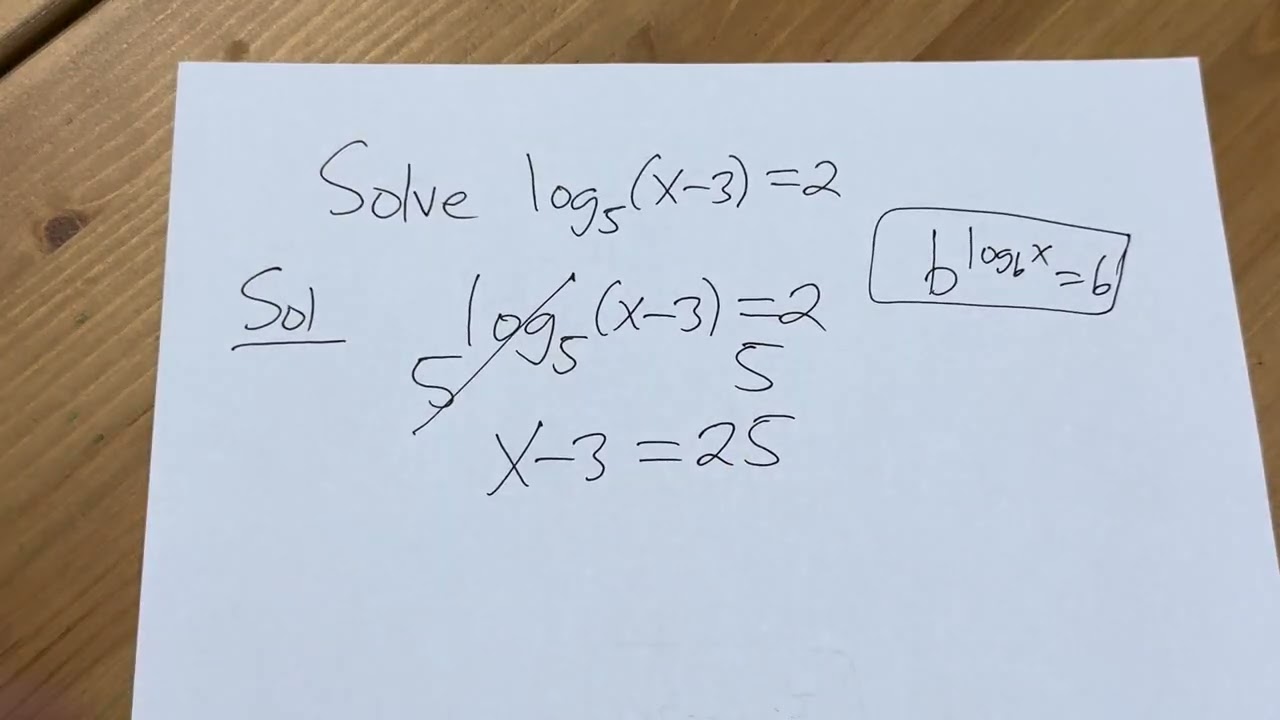 Solve log₅(x-3)=2
b^(log_b x)=b
Sol 5^(log₅(x-3))=5^2
x-3=25